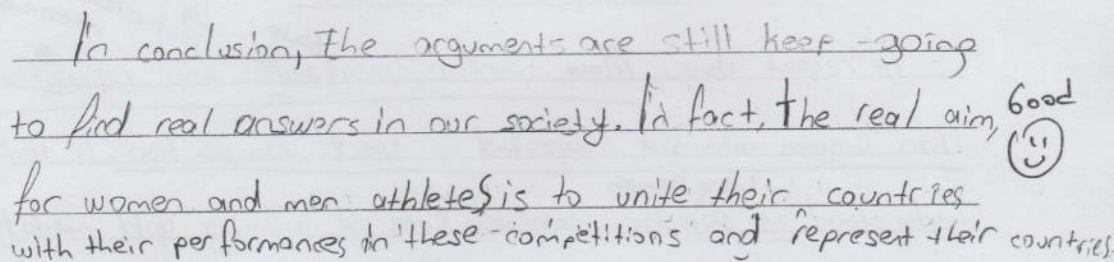 In conclusion, the arguments are still keep-going
to find real answers in our society. In fact, the real aim, Good
for women and men athletes is to unite their countries
with their performances in these competitions and represent their countries.